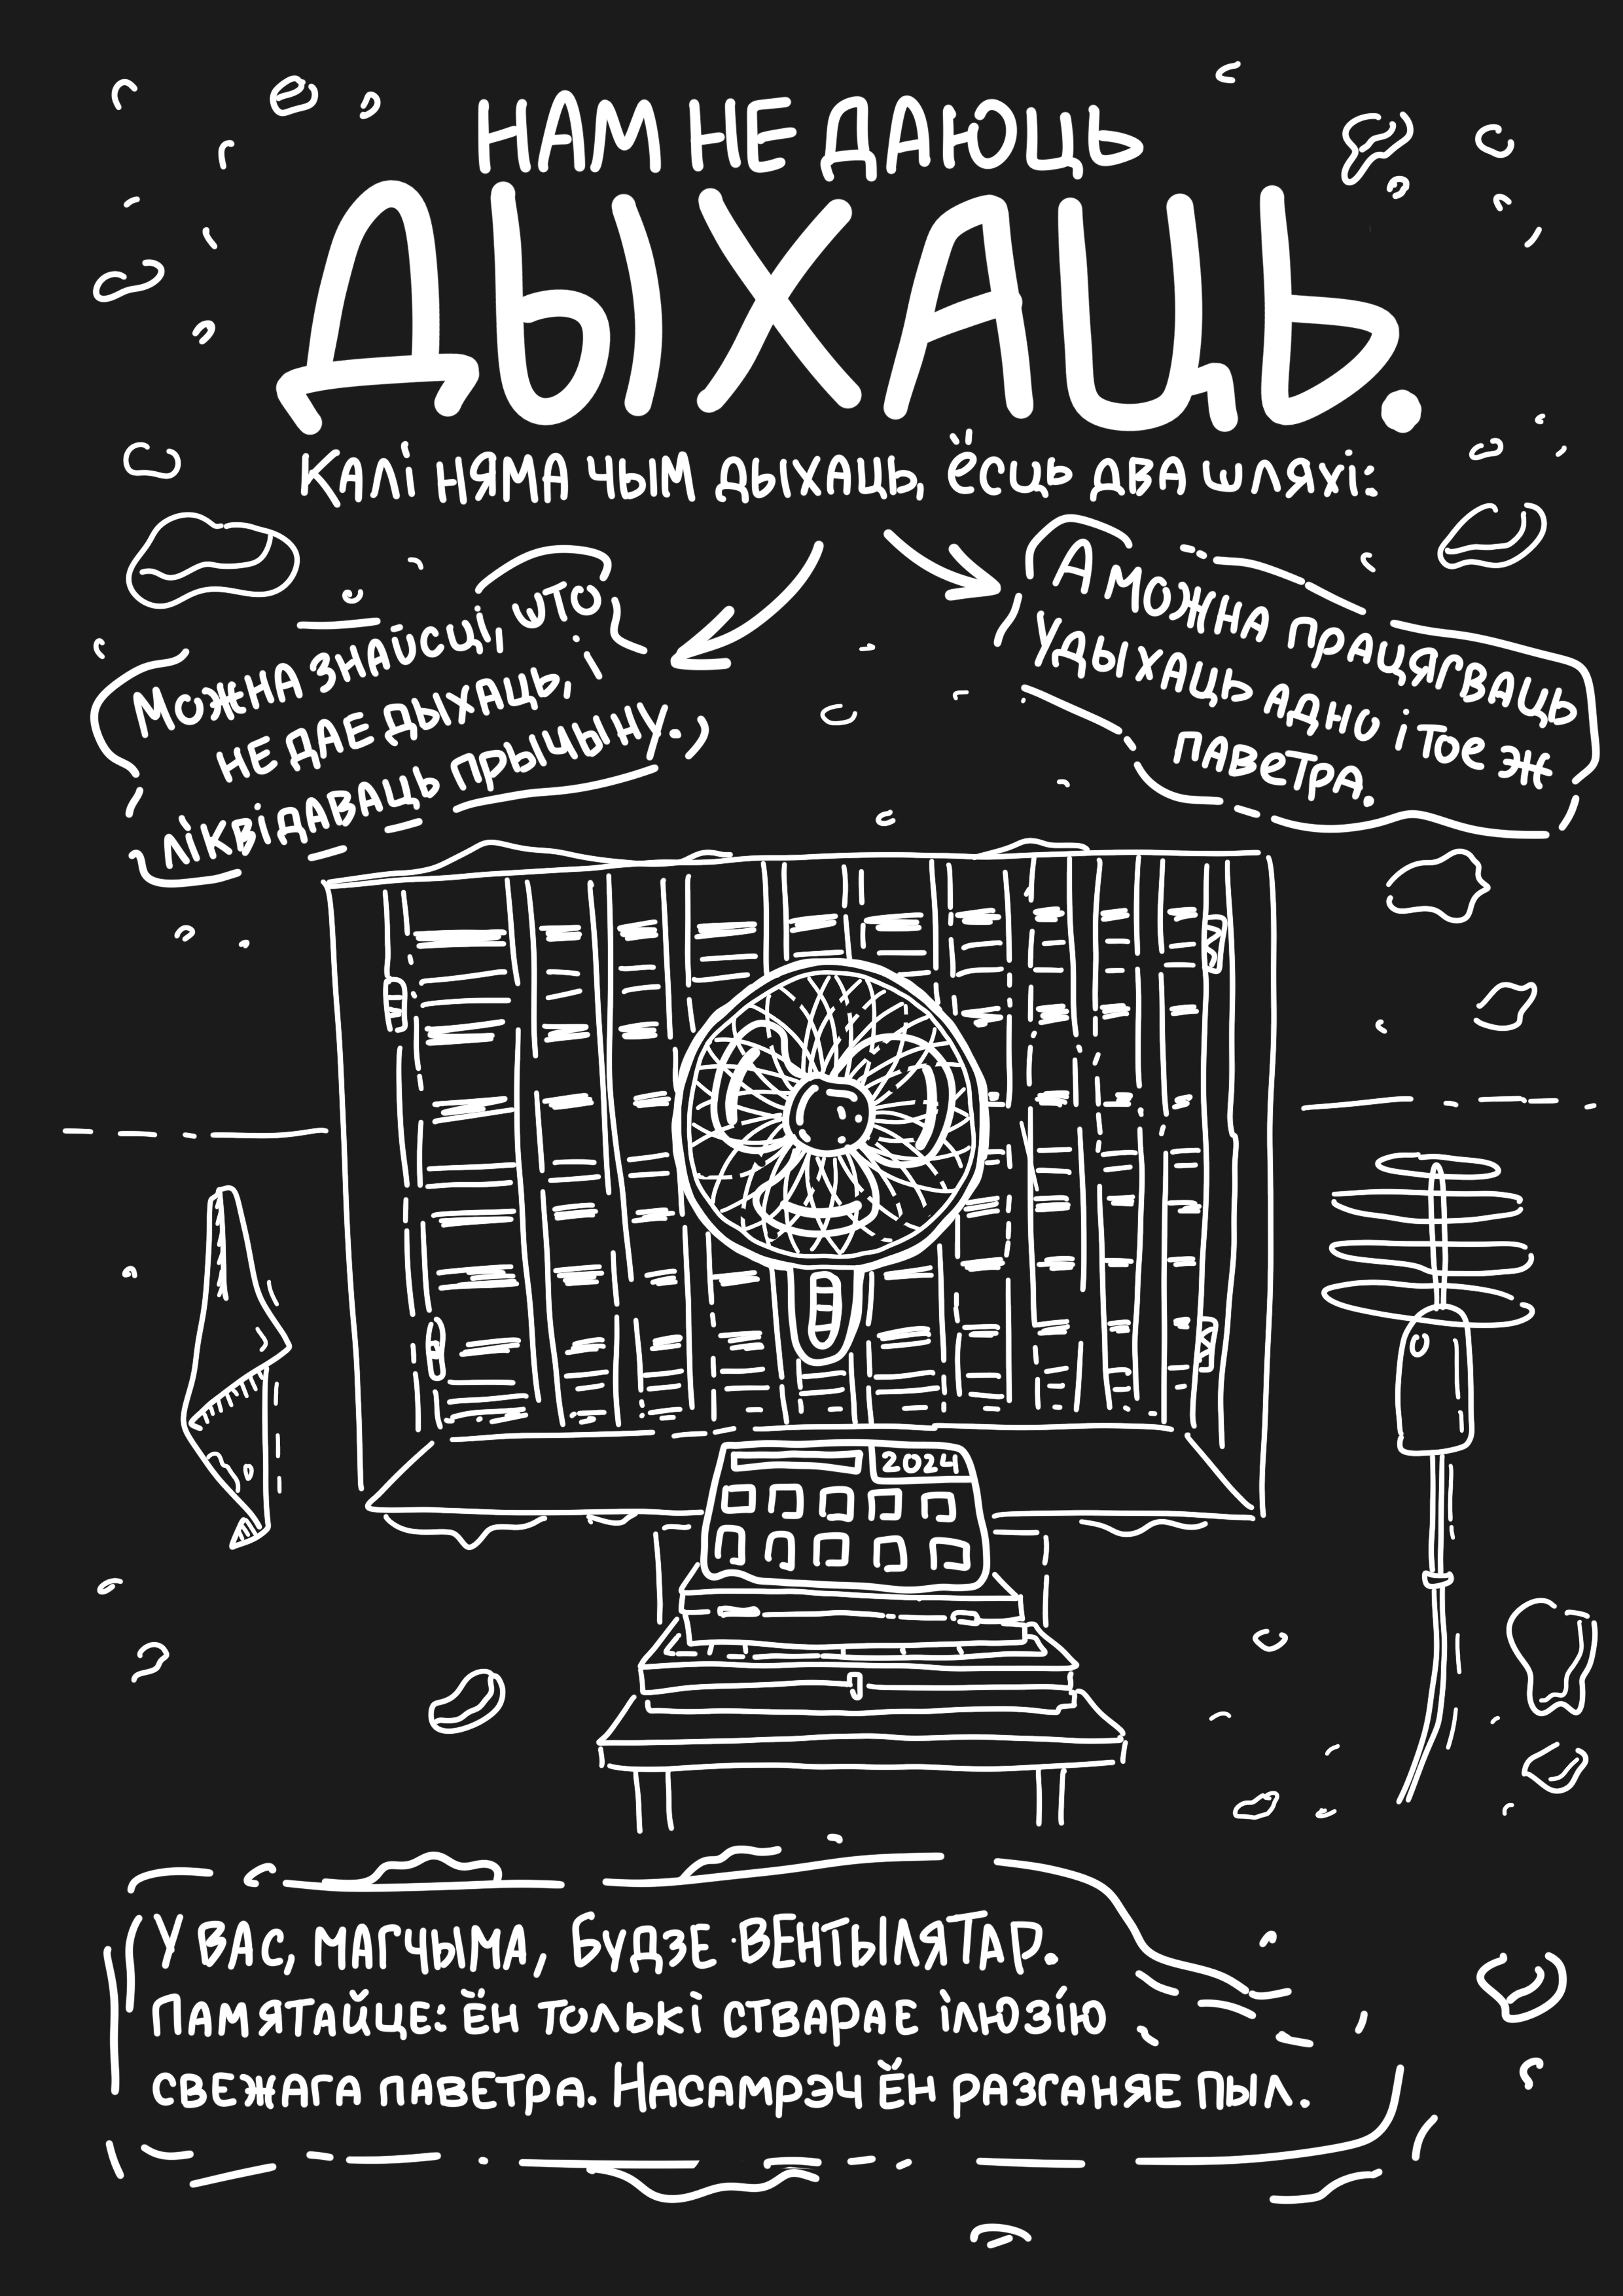 НАМ НЕ ДАЮЦЬ
ДЫХАЦЬ.
КАЛІ НЯМА ЧЫМ ДЫХАЦЬ, ЁСЦЬ ДВА ШЛЯХІ:
МОЖНА ЗНАЙСЦІ, ШТО
НЕ ДАЕ ДЫХАЦЬ, І
ЛІКВІДАВАЦЬ ПРЫЧЫНУ.
А МОЖНА ПРАЦЯГВАЦЬ
УДЫХАЦЬ АДНО І ТОЕ Ж
ПАВЕТРА.
2024
У ВАС, МАГЧЫМА, БУДЗЕ ВЕНТЫЛЯТАР.
ПАМЯТАЙЦЕ: ЁН ТОЛЬКІ СТВАРАЕ ІЛЮЗІЮ
СВЕЖАГА ПАВЕТРА. НАСАМРЭЧ ЁН РАЗГАНЯЕ ПЫЛ.